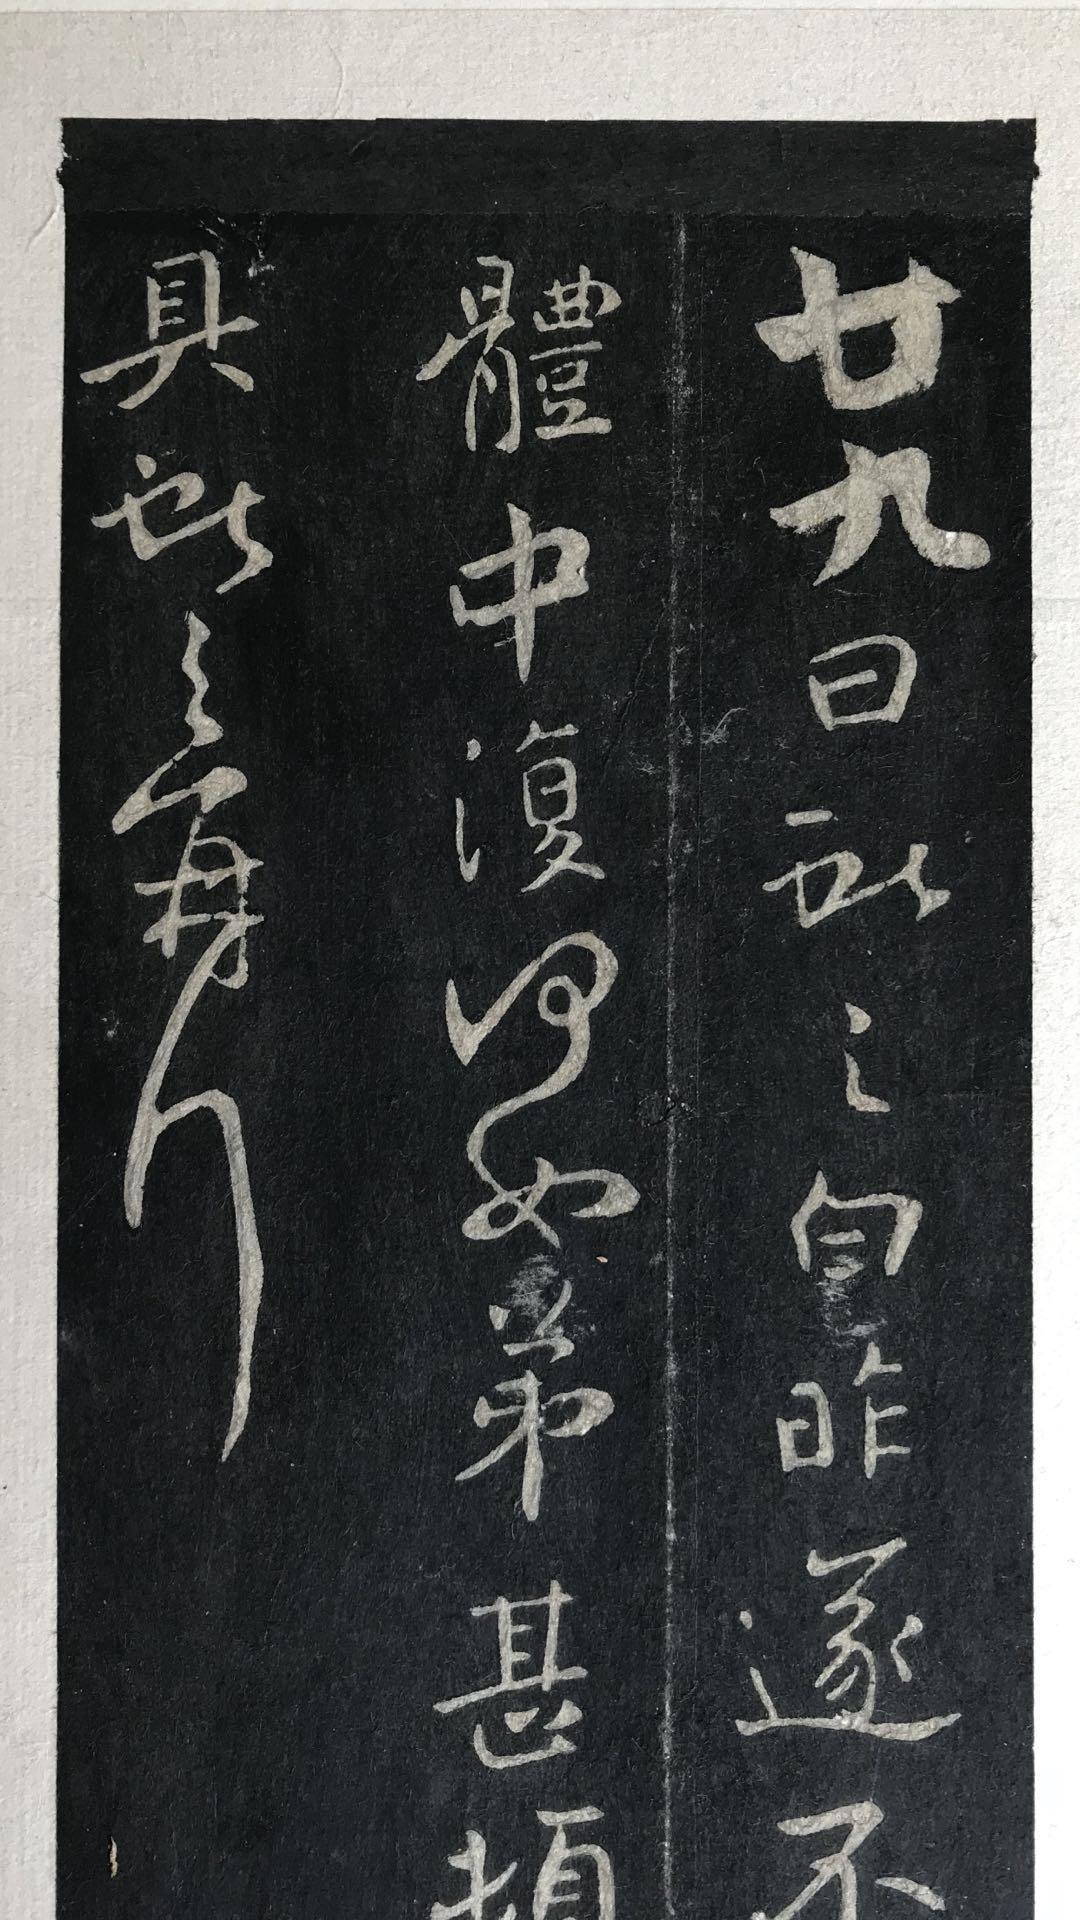 廿九日獻之白昨遂不
體中復何如弟甚頓
具獻之再拜